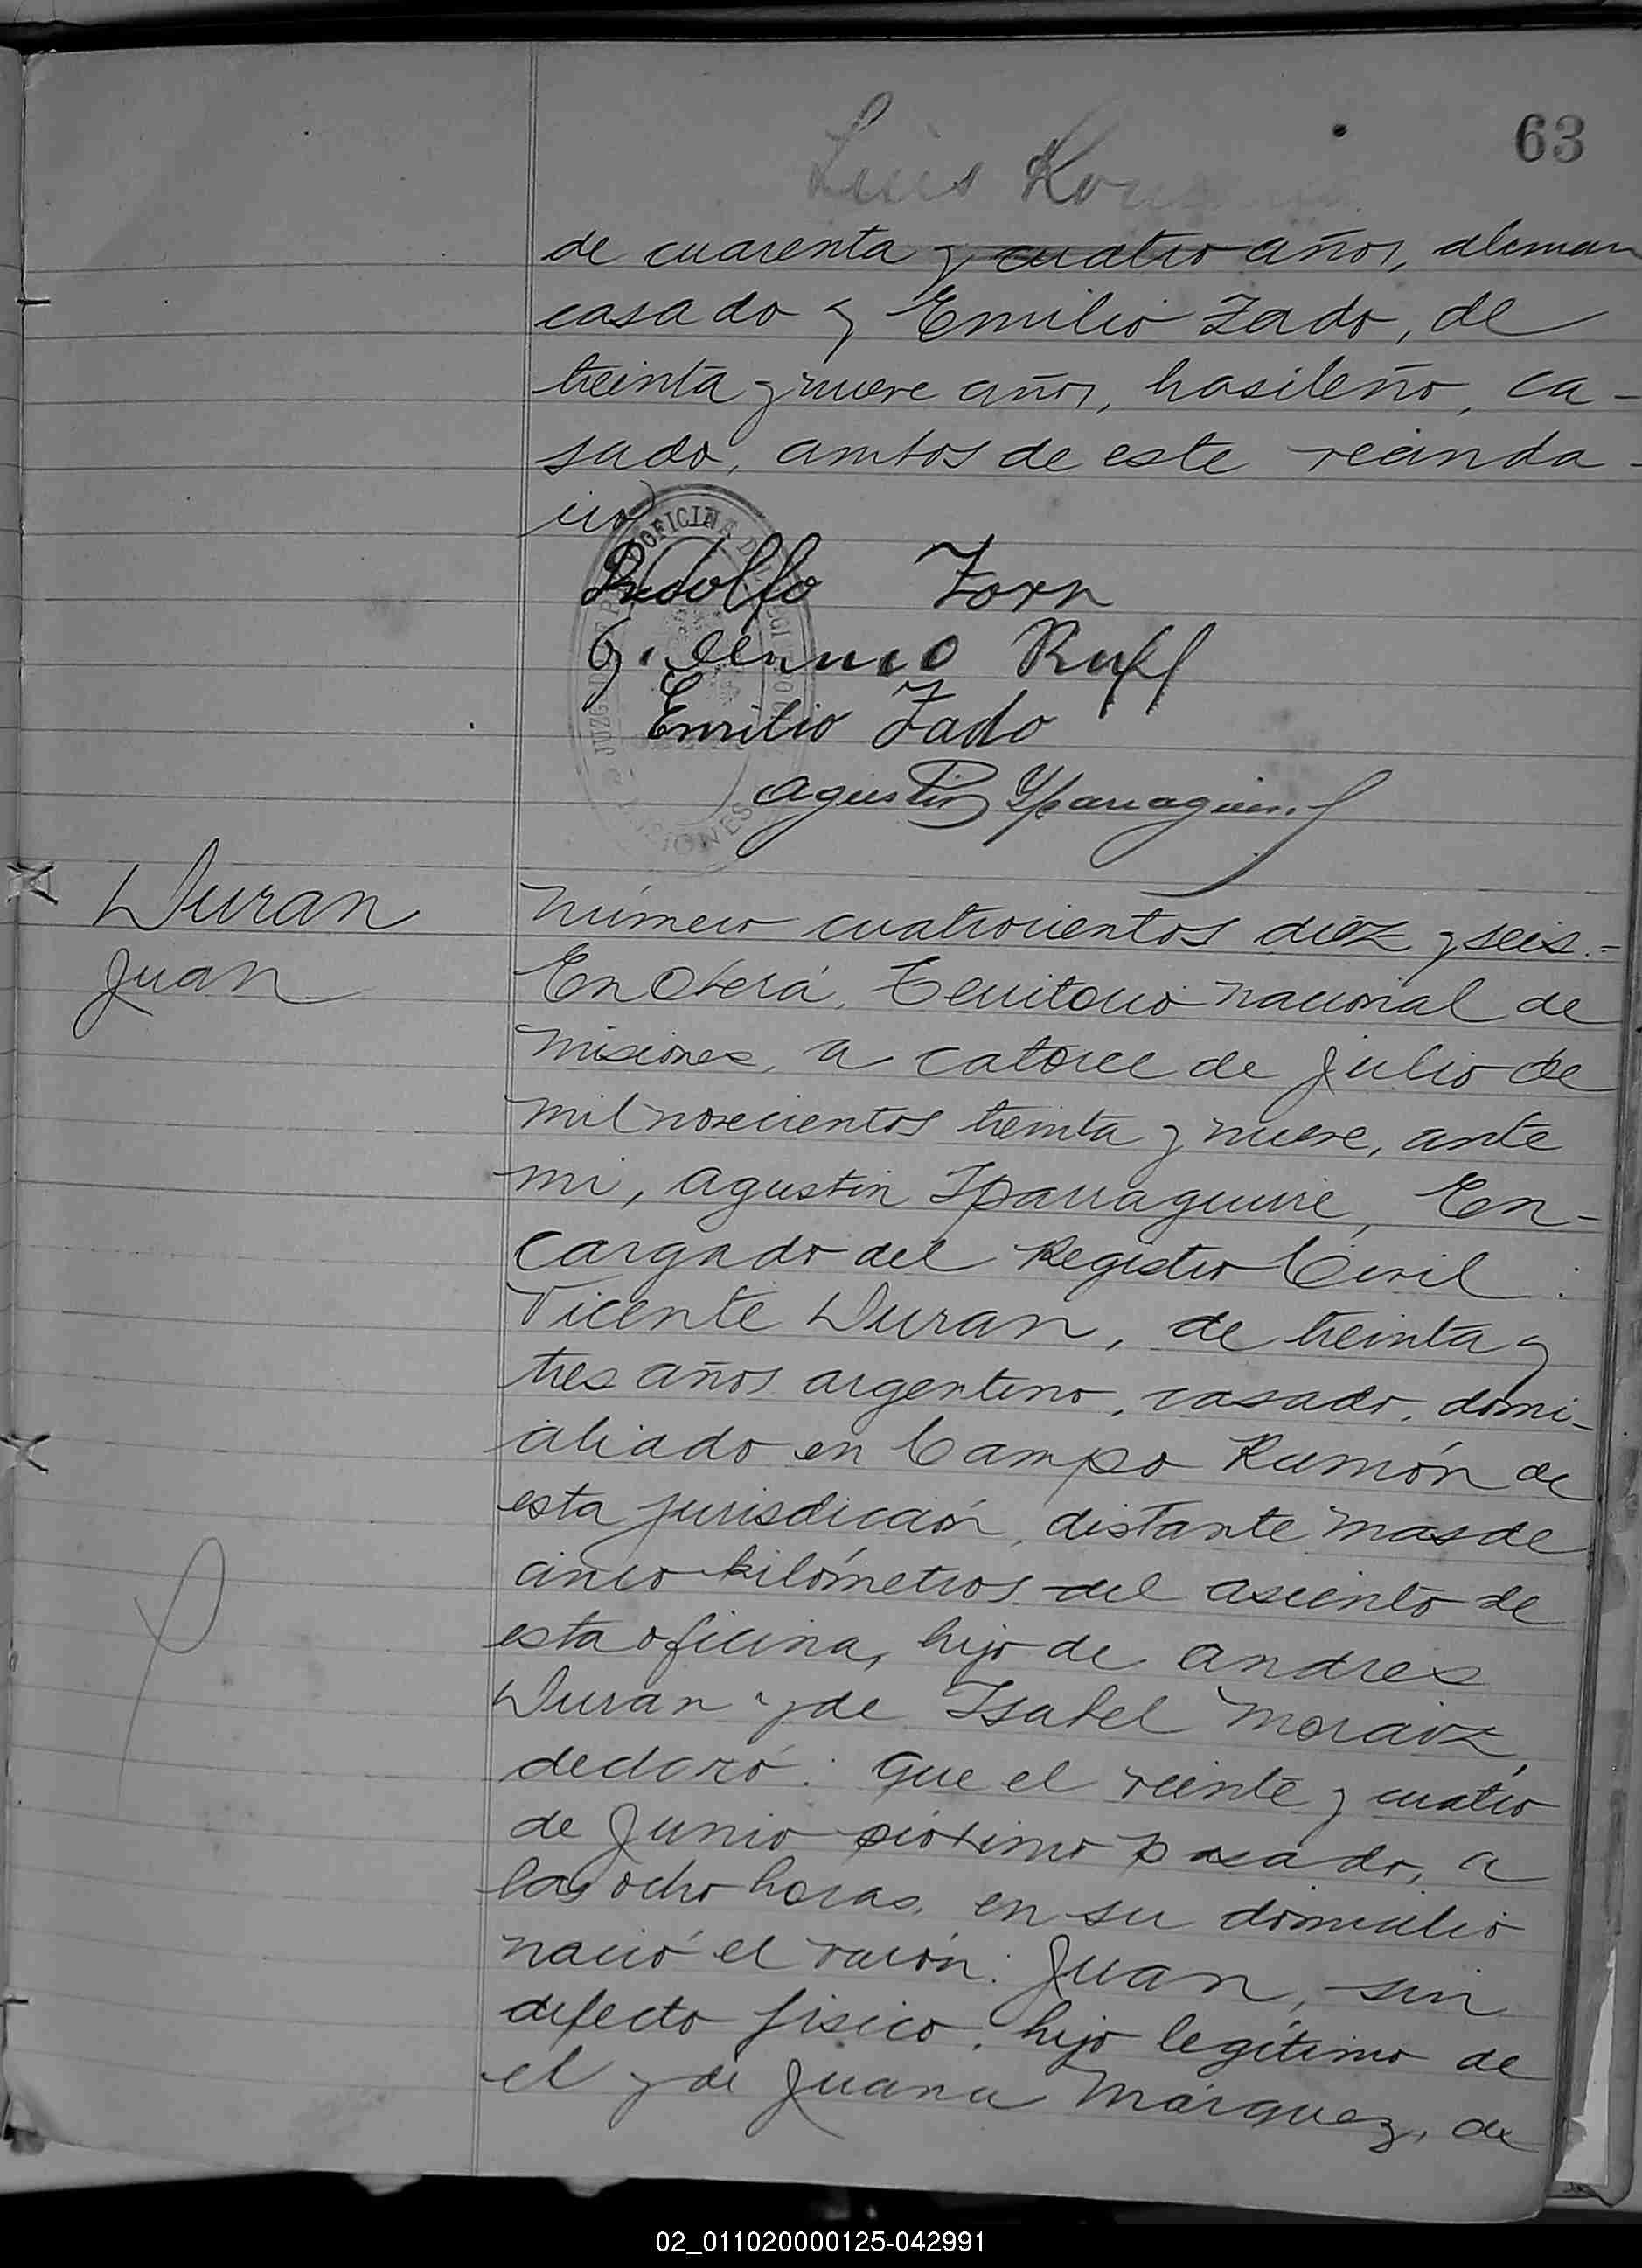 63
Luis
de cuarenta y cuatro años, aleman
casado y Emilio Zado, de
treinta y nueve años, brasileño, ca-
sado, ambos de este vecinda-
rio
OFICINA
Rodolfo Zorn
G. Ruff
Emilio Zado
Agustin Yparraguirre
MISIONES
Duran
Juan
Número cuatrocientos diez y seis.-
En Oberá, Territorio nacional de
Misiones, a catorce de Julio de
mil novecientos treinta y nueve, ante
mi, Agustin Iparraguirre, En-
cargado del Registro Civil:
Vicente Duran, de treinta y
tres años argentino, casado, domi-
ciliado en Campo Ramón de
esta jurisdicción, distante mas de
cinco kilómetros del asiento de
esta oficina, hijo de Andres
Duran y de Isabel Moraiz,
declaró: Que el veinte y cuatro
de Junio próximo pasado, a
las ocho horas, en su domicilio
nació el varón: Juan, sin
defecto físico, hijo legítimo de
el y de Juana Márquez, de
02_011020000125-042991